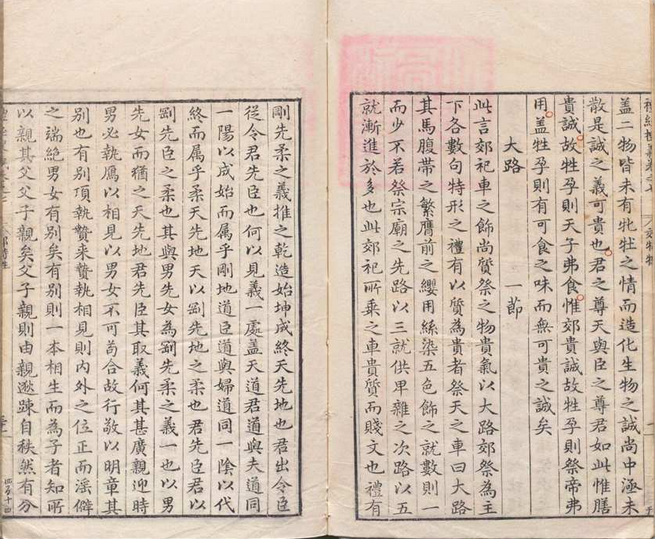 蓋二物皆未有牝牡之情而造化生物之誠尚中涵未
散是誠之義可貴也君之尊天與臣之尊君如此惟膳
貴誠故牲孕則天子弗食惟郊貴誠故牲孕則祭帝弗
用蓋牲孕則有可食之味而無可貴之誠矣
大路 一節
此言郊祀車之飾尚質祭之物貴氣以大路郊祭為主
下各數句特形之禮有以質為貴者祭天之車曰大路
其馬腹帶之繁膺前之纓用絲染五色飾之就數則一
而少不若祭宗廟之先路以三就供卑雜之次路以五
就漸進於多也此郊祀所乘之車貴質而賤文也禮有
剛先柔之義推之乾造始坤成終天先地也君出令臣
從令君先臣也何以見義一處蓋天道君道與夫道同
一陽以成始而属乎剛地道臣道與婦道同一陰以代
終而属乎柔天先地天以剛先地之柔也君先臣君以
剛先臣之柔也其與男先女為剛先柔之義一也以男
先女而猶之天先地君先臣其取義何其甚廣親迎時
男必執鴈以相見以男女不可苟合故行敬以明章其
別也有別頂執贄来贄執相見則內外之位正而淫僻
之端絕男女有別矣有別則一本相生而為子者知所
以親其父父子親矣父子親則由親遡踈自秩然有分